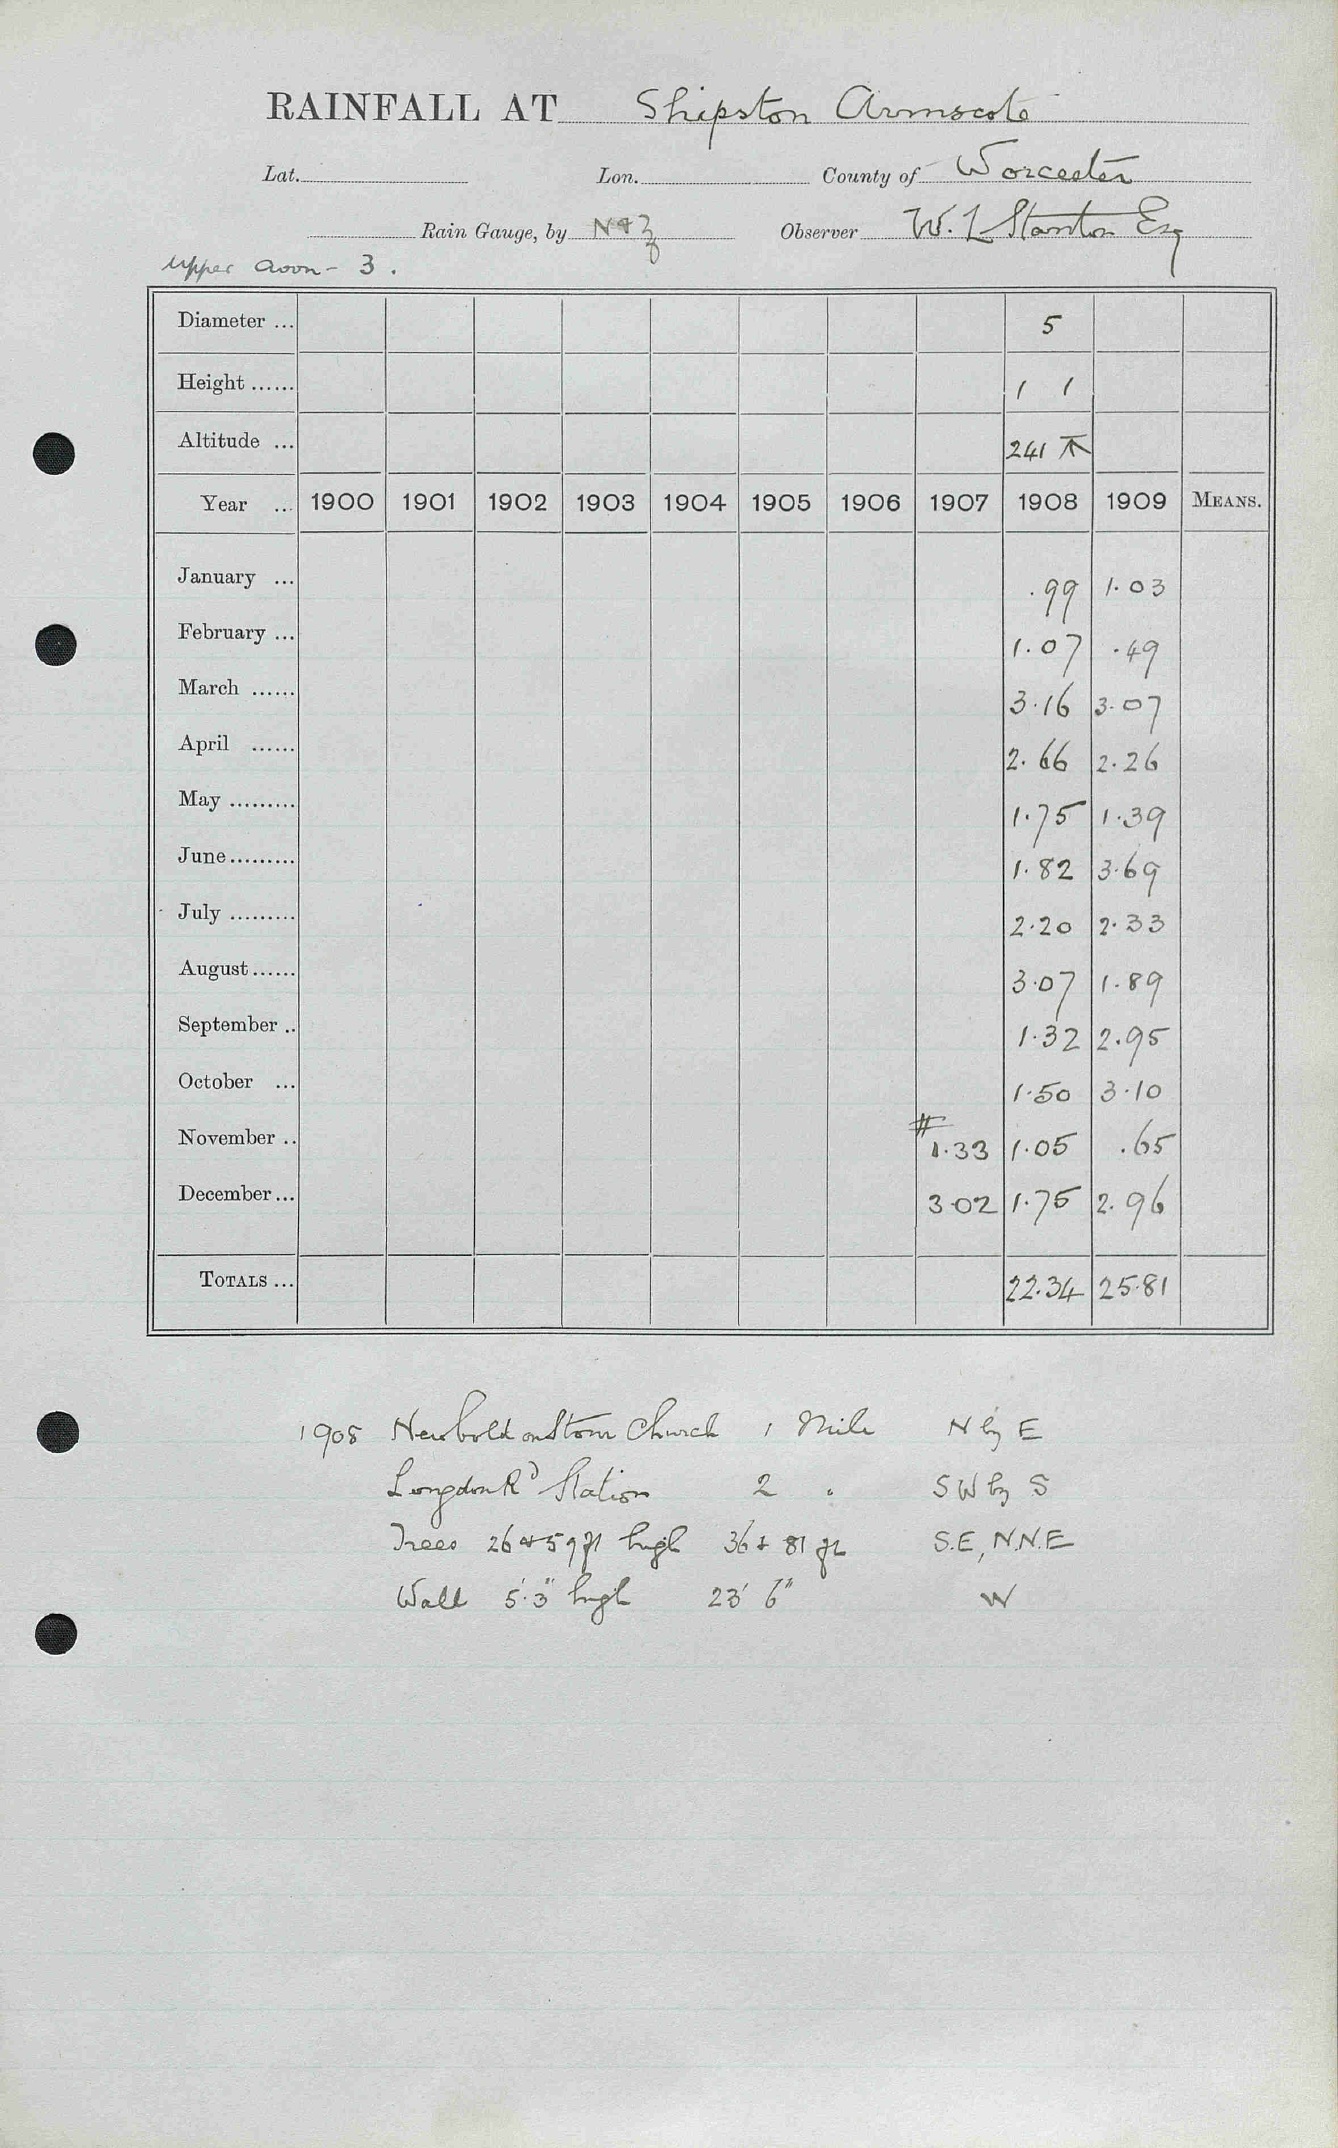 RAINFALL AT Shipston Armscote
Lat. Lon. County of Worcester
Rain Gauge, by N & Z Observer W. L Stanton Esq
Upper Avon - 3.
Diameter ... 5
Height ...... 1 1
Altitude ... 241
Year ... 1900 1901 1902 1903 1904 1905 1906 1907 1908 1909 MEANS.
January ... .99 1.03
February ... 1.07 .49
March ...... 3.16 3.07
April ...... 2.66 2.26
May ......... 1.75 1.39
June ......... 1.82 3.69
July ......... 2.20 2.33
August ...... 3.07 1.89
September .. 1.32 2.95
October ... 1.50 3.10
November .. # 1.33 1.05 .65
December ... 3.02 1.75 2.96
TOTALS ... 22.34 25.81
1908 Newbold on Stour Church 1 Mile N by E
Longdon Rd Station 2 " SW by S
Trees 26 & 59 ft high 36 & 81 ft S.E, N.N.E
Wall 5' 3" high 23' 6" W